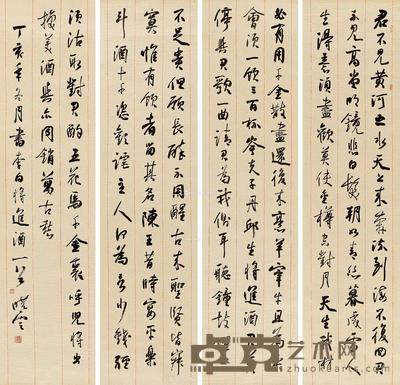 君不見黃河之水天上來奔流到海不復回君
不見高堂明鏡悲白髮朝如青絲暮成雪人
生得意須盡歡莫使金樽空對月天生我材
必有用千金散盡還復來烹羊宰牛且為樂
會須一飲三百杯岑夫子丹邱生將進酒
停與君歌一曲請君為我傾耳聽鐘鼓
不足貴但願長醉不用醒古來聖賢皆寂
寞惟有飲者留其名陳王昔時宴平樂
斗酒十千恣歡謔主人何為言少錢徑
須沽取對君酌五花馬千金裘呼兒將出
換美酒與爾同銷萬古愁
丁亥年冬月書李白將進酒一首 曉雲
艺术网